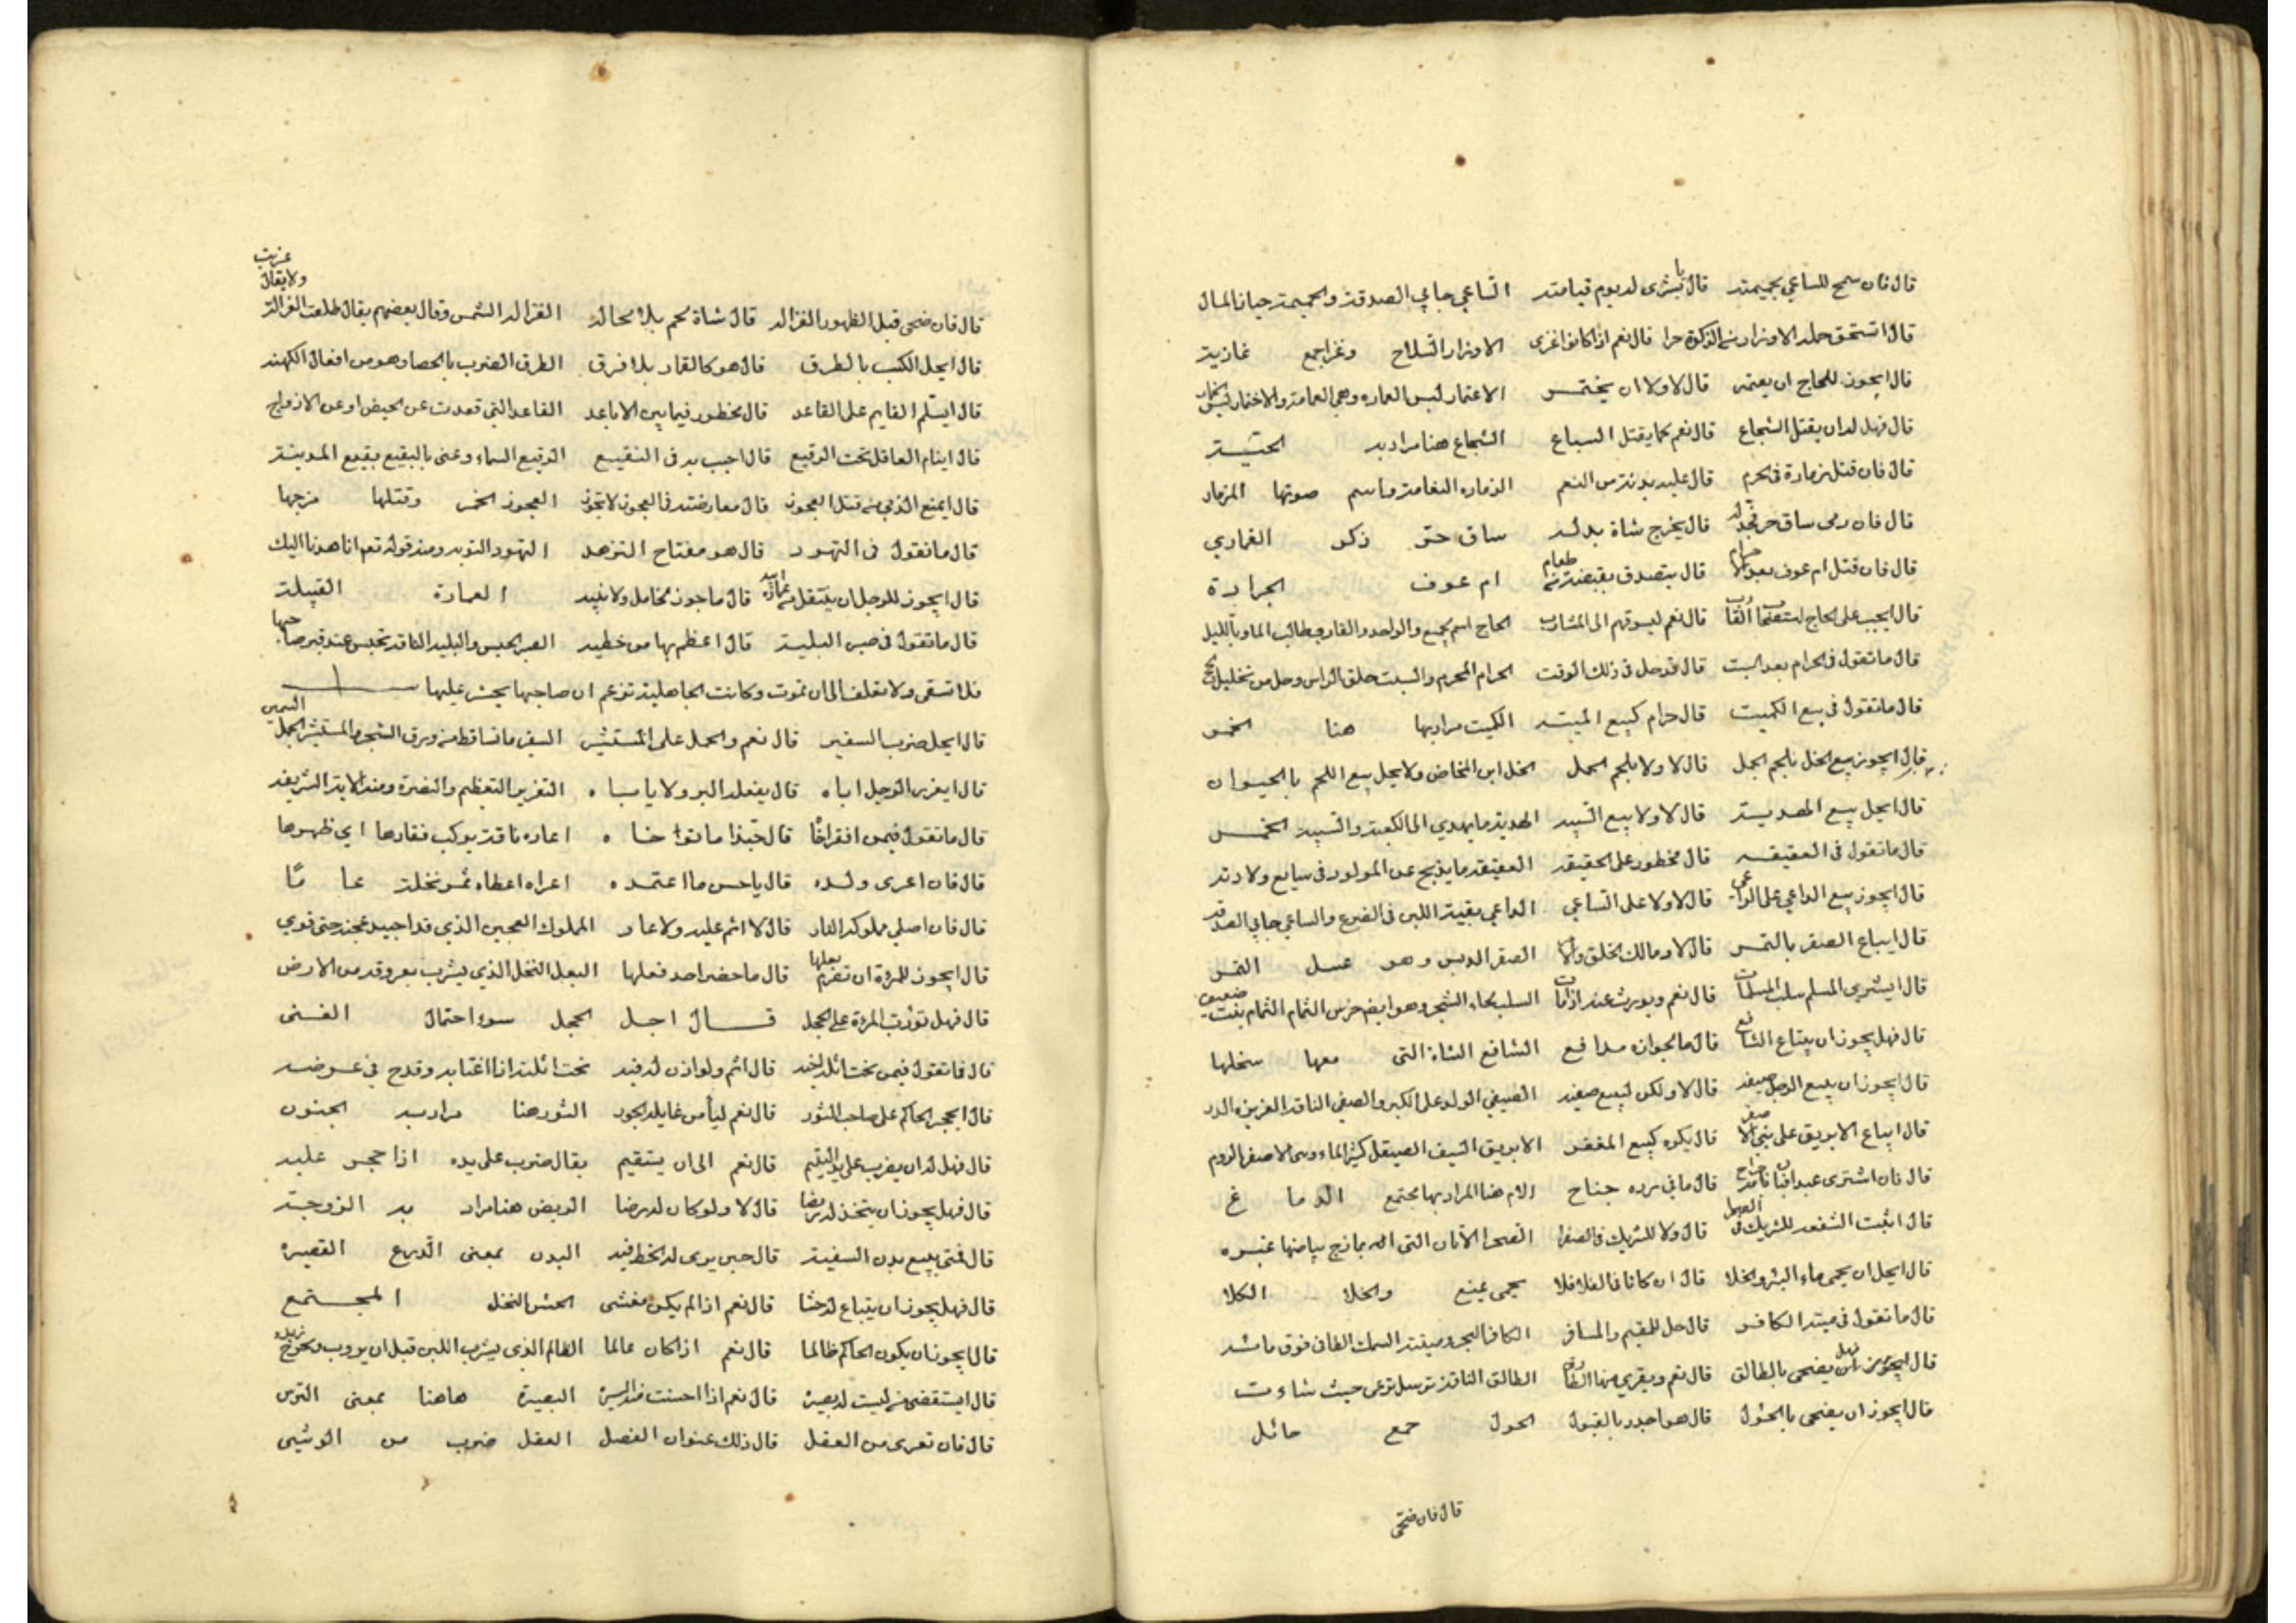 قال فان سمح للساعي بحميمته قال يا بشرى له يوم قيامته الساعي جابي الصدقة والحميمة خيار المال
قال استحق حمله الاوزار من الزكوة جزا قال نعم اذا كانوا غزى الاوزار السلاح وغزا جمع غازية
قال ايجوز للحاج ان يعتمر قال لا ولا ان يختمر الاعتمار لبس العماره وهي العمامة والاختمار لبس الخمار
قال فهل له ان يقتل الشجاع قال نعم كما يقتل السباع الشجاع هنا مراد به الحية
قال فان قتل زمارة في الحرم قال عليه بدنة من النعم الزماره النعامة واسم صوتها المزمار
قال فان رمى ساق حر فجدله قال يخرج شاة بدله ساق حر ذكر القماري
قال فان قتل ام عوف بعد الاحرام قال يتصدق بقبضة من طعام ام عوف الجرادة
قال ايجب على الحاج استصحاب القارب قال نعم ليسوقهم الى المشارب الحاج اسم لجمع والواحد والقارب طالب الماء بالليل
قال ما تقول في الحرام بعد السبت قال قد حل في ذلك الوقت الحرام المحرم والسبت حلق الراس وحل من تحليل الحج
قال ما تقول في بيع الكميت قال حرام كبيع الميتة الكميت مراد بها هنا الخمر
قال ايجوز بيع الخل بلحم الجمل قال لا ولا بلحم الحمل الخل ابن المخاض ولا يحل بيع اللحم بالحيوان
قال ايحل بيع الهدية قال لا ولا بيع السبيه الهدية ما يهدي الى الكعبة والسبيه الخمر
قال ما تقول في العقيقه قال محظور على الحقيقه العقيقه ما يذبح عن المولود في سابع ولادته
قال ايجوز بيع الداعي على الراعي قال لا ولا على الساعي الداعي بقية اللبن في الضرع والساعي جابي الصدقه
قال ايباع الصقر بالتمر قال لا ومالك الخلق والامر الصقر الدبس وهو عسل التمر
قال ايشتري المسلم سلب المسلمات قال نعم ويورث عنه اذا مات السلب لحاء الشجر وهو ايضا خوص الثمام الثمام نبت ضعيف
قال فهل يجوز ان يبتاع الشافع قال ما لجوازه من دافع الشافع الشاة التي معها سخلها
قال ايجوز ان يبيع الرجل صيفيه قال لا ولكن ليبيع صفيه الصيفي الولد على الكبر والصفي الناقة الغزيرة الدر
قال ايباع الابريق على بني الاصفر قال يكره كبيع المغفر الابريق السيف الصيقل كثير الماء وبنى الاصفر الروم
قال فان اشترى عبدا فبان بامه جراح قال ما في رده جناح الام هنا المراد بها مجتمع الدماغ
قال اتثبت الشفعه للشريك في الصحرا قال ولا للشريك في الصفرا الصحرا الاتان التي يمازج بياضها غبره
قال ايحل ان يحمى ماء البئر والخلا قال ان كانا في الفلا فلا يحمى يمنع والخلا الكلا
قال ما تقول في ميتة الكافر قال حل للمقيم والمسافر الكافر البحر وميتته السمك الطافي فوق مائه
قال ايجوز ان يضحى بالطالق قال نعم ويقرى منها الطارق الطالق الناقة ترسل ترعى حيث شاءت
قال ايجوز ان يضحى بالحول قال هو اجدر بالقبول الحول جمع حائل
قال فان ضحى
عربت
ولا يقال
قال فان ضحى قبل الظهور الغزاله قال شاة لحم بلا محاله الغزاله الشمس وقال بعضهم يقال طلعت الغزالة
قال ايحل الكسب بالطرق قال هو كالقمار بلا فرق الطرق الضرب بالحصا وهو من افعال الكهنه
قال ايسلم القايم على القاعد قال محظور فيما بين الاباعد القاعد التي قعدت عن الحيض او عن الازواج
قال اينام العاقل تحت الرقيع قال احبب به في البقيع الرقيع السماء وعنى بالبقيع بقيع المدينة
قال ايمنع الذمي من قتل العجوز قال معارضته في العجوز لا تجوز العجوز الخمر وقتلها مزجها
قال ما تقول في التهود قال هو مفتاح التزهد التهود التوبه ومنه قوله تعم انا هدنا اليك
قال ايجوز للرجل ان ينتقل من عمارة ابيه قال ما جوز لخامل ولا نبيه العمارة القبيلة
قال ما تقول في صبر البلية قال اعظم بها من خطيه الصبر الحبس والبليه الناقه تحبس عند قبر صاحبها
فلا تسقى ولا تعلف الى ان تموت وكانت الجاهلية تزعم ان صاحبها يحشر عليها
قال ايحل ضرب السفير قال نعم والحمل على المستشير السفير ما تساقط من ورق الشجر والمستشير الجمل السمين
قال ايعزر الرجل اباه قال يفعله البر ولا ياباه التعزير التعظيم والنصرة ومنه الاية الشريفه
قال ما تقول فيمن افقر اخا قال حبذا ما توخاه اعاره ناقة يركب فقارها اي ظهرها
قال فان اعرى ولده قال يا حسن ما اعتمده اعراه اعطاه ثمر نخلة عاما
قال فان اصلى مملوكه النار قال لا اثم عليه ولا عار المملوك العجين الذي قد اجيد عجنه حتى قوي
قال ايجوز للمرءة ان تصرم بعلها قال ما حضر احد فعلها البعل النخل الذي يشرب بعروقه من الارض
قال فهل تؤدب المرءة على الخجل قال اجل الخجل سوء احتمال الغنى
قال فما تقول فيمن نحت اثلة اخيه قال اثم ولو اذن له فيه نحت اثلته اذا اغتابه وقدح في عرضه
قال ايحجر الحاكم على صاحب الثور قال نعم ليأمن غايلة الجور الثور هنا مراد به الجنون
قال فهل له ان يضرب على يد اليتيم قال نعم الى ان يستقيم يقال ضرب على يده اذا حجر عليه
قال فهل يجوز ان يتخذ له ربضا قال لا ولو كان له رضا الربض هنا مراد به الزوجة
قال فمتى يبيع بدن السفيه قال حين يرى له الحظ فيه البدن بمعنى الدرع القصيره
قال فهل يجوز ان يبتاع له حشا قال نعم اذا لم يكن مغشى الحش النخل المجتمع
قال ايجوز ان يكون الحاكم ظالما قال نعم اذا كان عالما الظالم الذي يشرب اللبن قبل ان يروب ويخرج زبده
قال ايستقضى من ليست له بصيره قال نعم اذا احسنت منه السيرة البصيرة هاهنا بمعنى الترس
قال فان تعرى من العقل قال ذلك عنوان الفضل العقل ضرب من الوشي